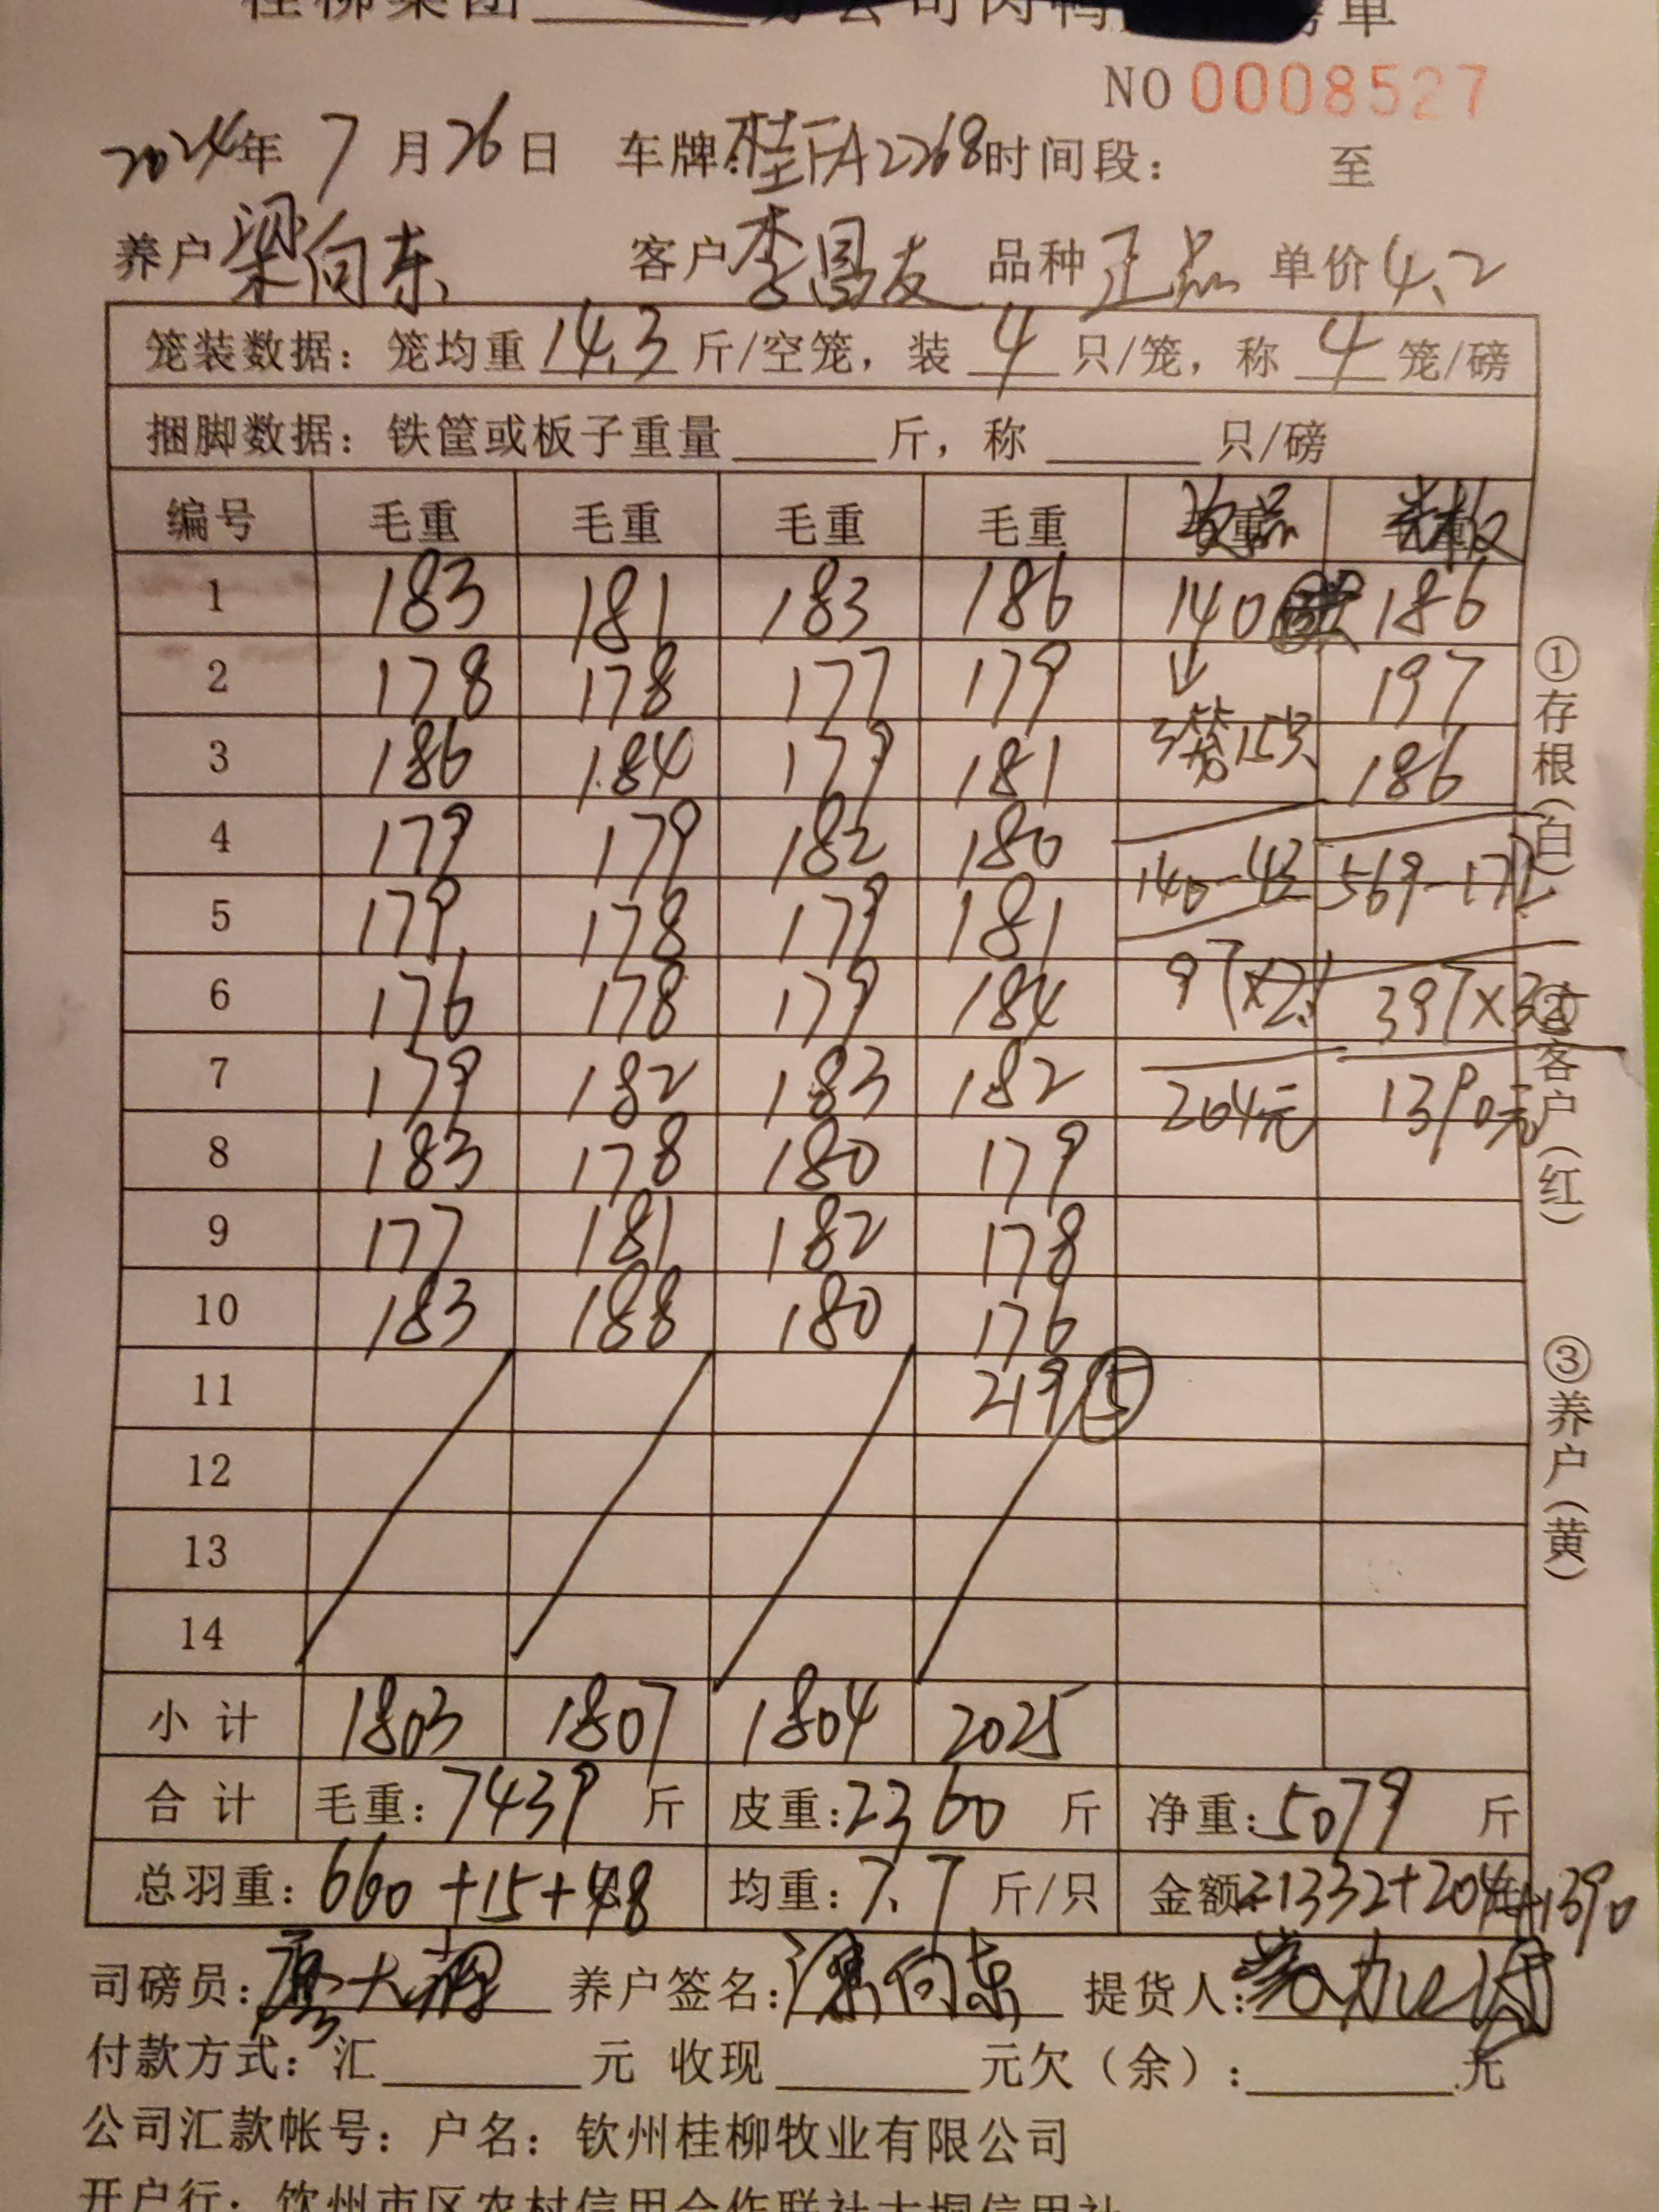 桂柳集团 分公司肉鸭 磅单
NO 0008527
2024年 7 月 26 日 车牌:桂FA2268 时间段: 至
养户 梁向东 客户 李昌友 品种 正品 单价 4.2
笼装数据: 笼均重 14.3 斤/空笼, 装 4 只/笼, 称 4 笼/磅
捆脚数据: 铁筐或板子重量 斤, 称 只/磅
编号 毛重 毛重 毛重 毛重
1 183 181 183 186 140 186
2 178 178 177 179 ↓ 197
3 186 184 179 181 3笼15只 186
4 179 179 182 180
5 179 178 179 181 140-43 569-172
6 176 178 179 184 97×2.1 397×3.5
7 179 182 183 182 204元 1390元
8 183 178 180 179
9 177 181 182 178
10 183 188 180 176
11 219 ⑤
12
13
14
小 计 1803 1807 1804 2025
合 计 毛重: 7439 斤 皮重: 2360 斤 净重: 5079 斤
总羽重: 660+15+48 均重: 7.7 斤/只 金额: 21332+204+1390
司磅员: 养户签名: 梁向东 提货人:
付款方式: 汇 元 收现 元欠(余): 元
公司汇款帐号: 户名: 钦州桂柳牧业有限公司
开户行: 钦州市区农村信用合作联社大垌信用社
①存根(白) ②客户(红) ③养户(黄)